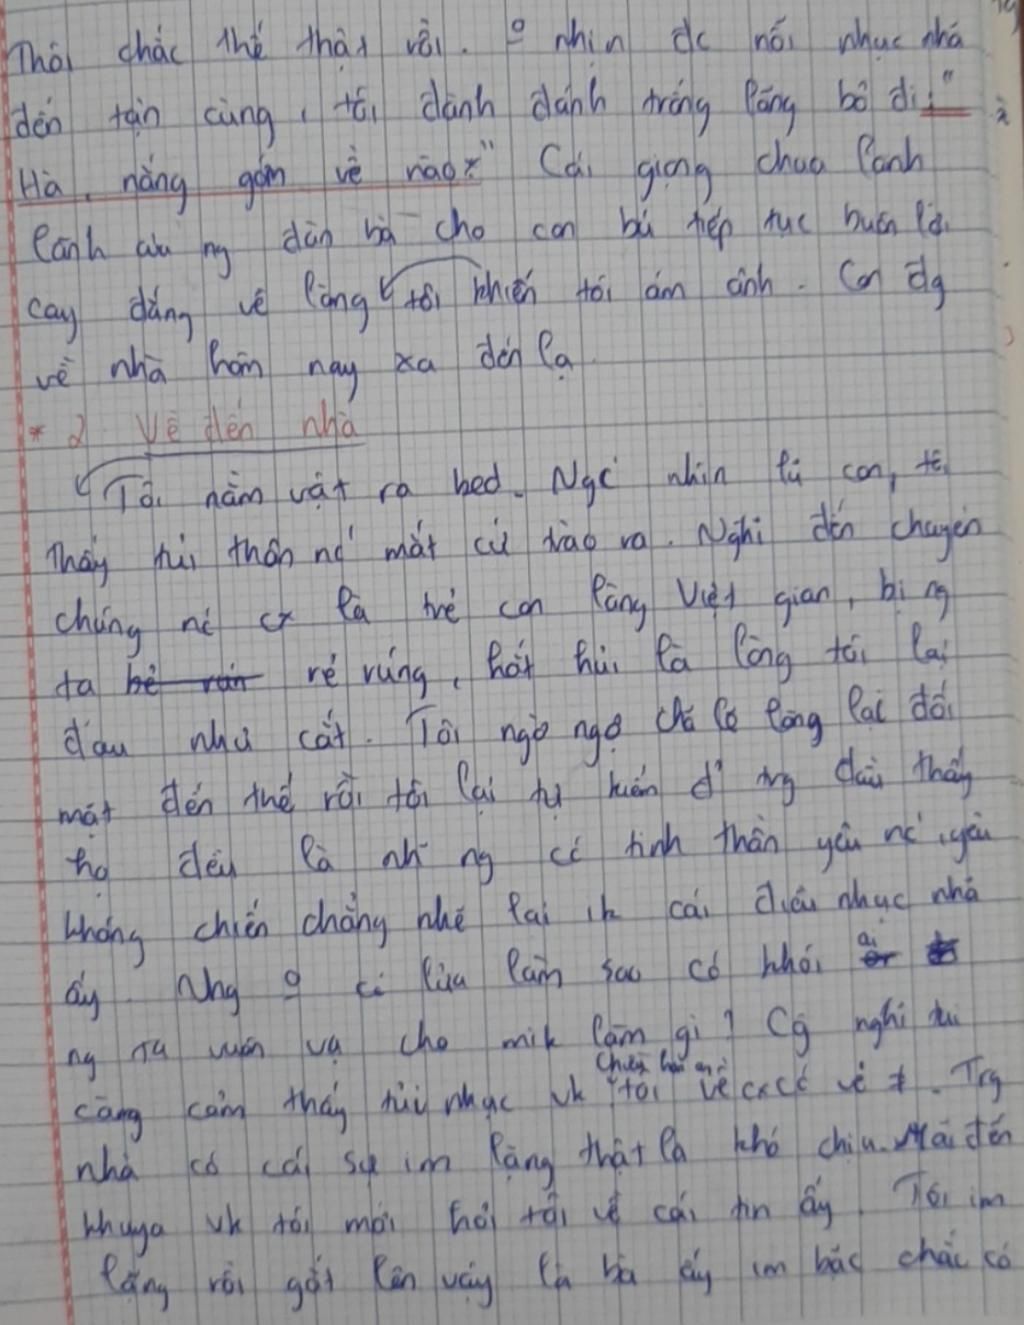 Thôi chắc thế thật rồi. o nhịn dc nỗi nhục nhã
đến tận cùng, tôi đành đánh trống lảng bỏ đi: "
Hà, nắng gớm về nào". Cái giọng chua lanh
lảnh của ng đàn bà cho con bú tiếp tục buôn lời
cay đắng về làng tôi khiến tôi ám ảnh. Con đg
về nhà hôm nay xa đến lạ
* 2 Về đến nhà
Tôi nằm vật ra bed. Ngc' nhìn lũ con, tôi
thấy tủi thân nc' mắt cứ trào ra. Nghĩ đến chuyện
chúng nó cx là trẻ con làng Việt gian, bị ng
ta rẻ rúng, hắt hủi là lòng tôi lại
đau như cắt. Tôi ngờ ngợ chả lẽ làng lại đổ
mạt đến thế rồi tôi lại tự kiểm đ' trg đầu thấy
họ đều là nh~ ng có tinh thần yêu nc', yêu
kháng chiến chẳng nhẽ lại ik cái điều nhục nhã
ấy. Nhg o có lửa làm sao có khói ai
ng ta vươn vạ cho mik làm gì? Cg nghĩ tôi
càng cảm thấy tủi nhục vk tôi về cx có vẻ
Chiều hôm ấy
Trg
nhà có cái sự im lặng thật là khó chịu. Mãi đến
khuya vk tôi mới hỏi tôi về cái tin ấy. Tôi im
lặng rồi gắt lên vậy là bà ấy im bặc chắc có